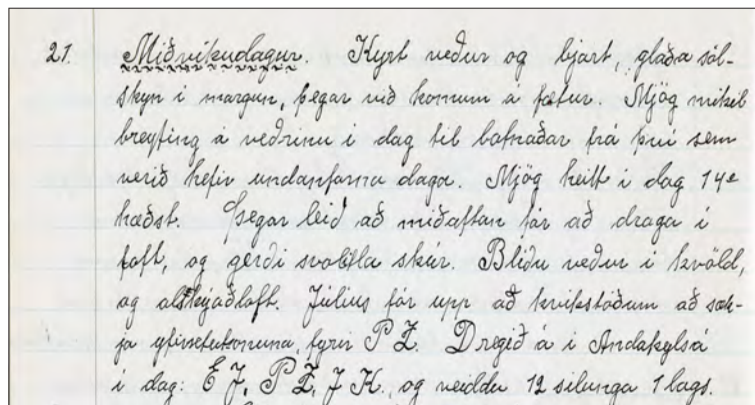 21. Miðvikudagur. Kyrt veður og bjart, glaða sól-
skyn i morgun, þegar við komum á fætur. Mjög mikil
breyting á veðrinu i dag til batnaðar frá því sem
verið hefir undanfarna daga. Mjög heitt i dag 14°
hæðst. Þegar leið að miðaftan fór að draga i
loft, og gerði svolitla skúr. Bliðu veður i kvöld,
og alskýaðloft. Július fór upp að kvikstöðum að sæk-
ja yfirsetukonuna, fyrir P Z. Dregið á i Andakylsá
i dag: E J, P Z, J K, og veiddu 12 silunga 1 lags.